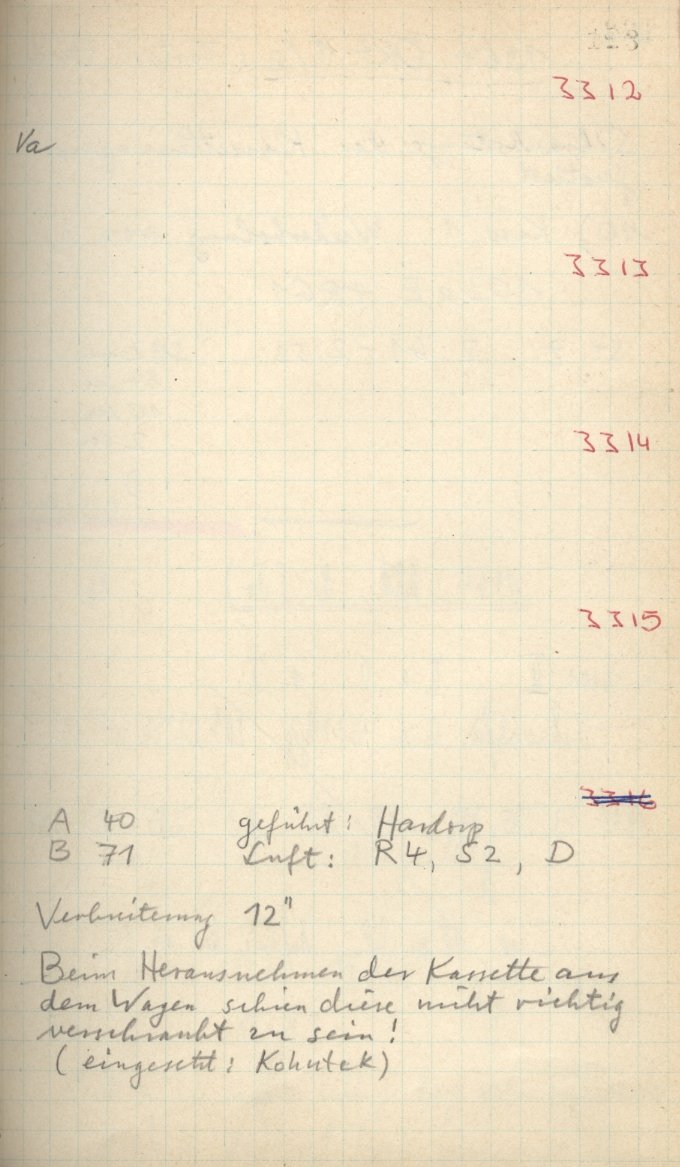 3312
Va
3313
3314
3315
3316
A 40 geführt: Hardorp
B 71 Luft: R4, S2, D
Verbreiterung 12"
Beim Herausnehmen der Kassette aus
dem Wagen schien diese nicht richtig
verschraubt zu sein!
(eingesetzt: Kohutek)